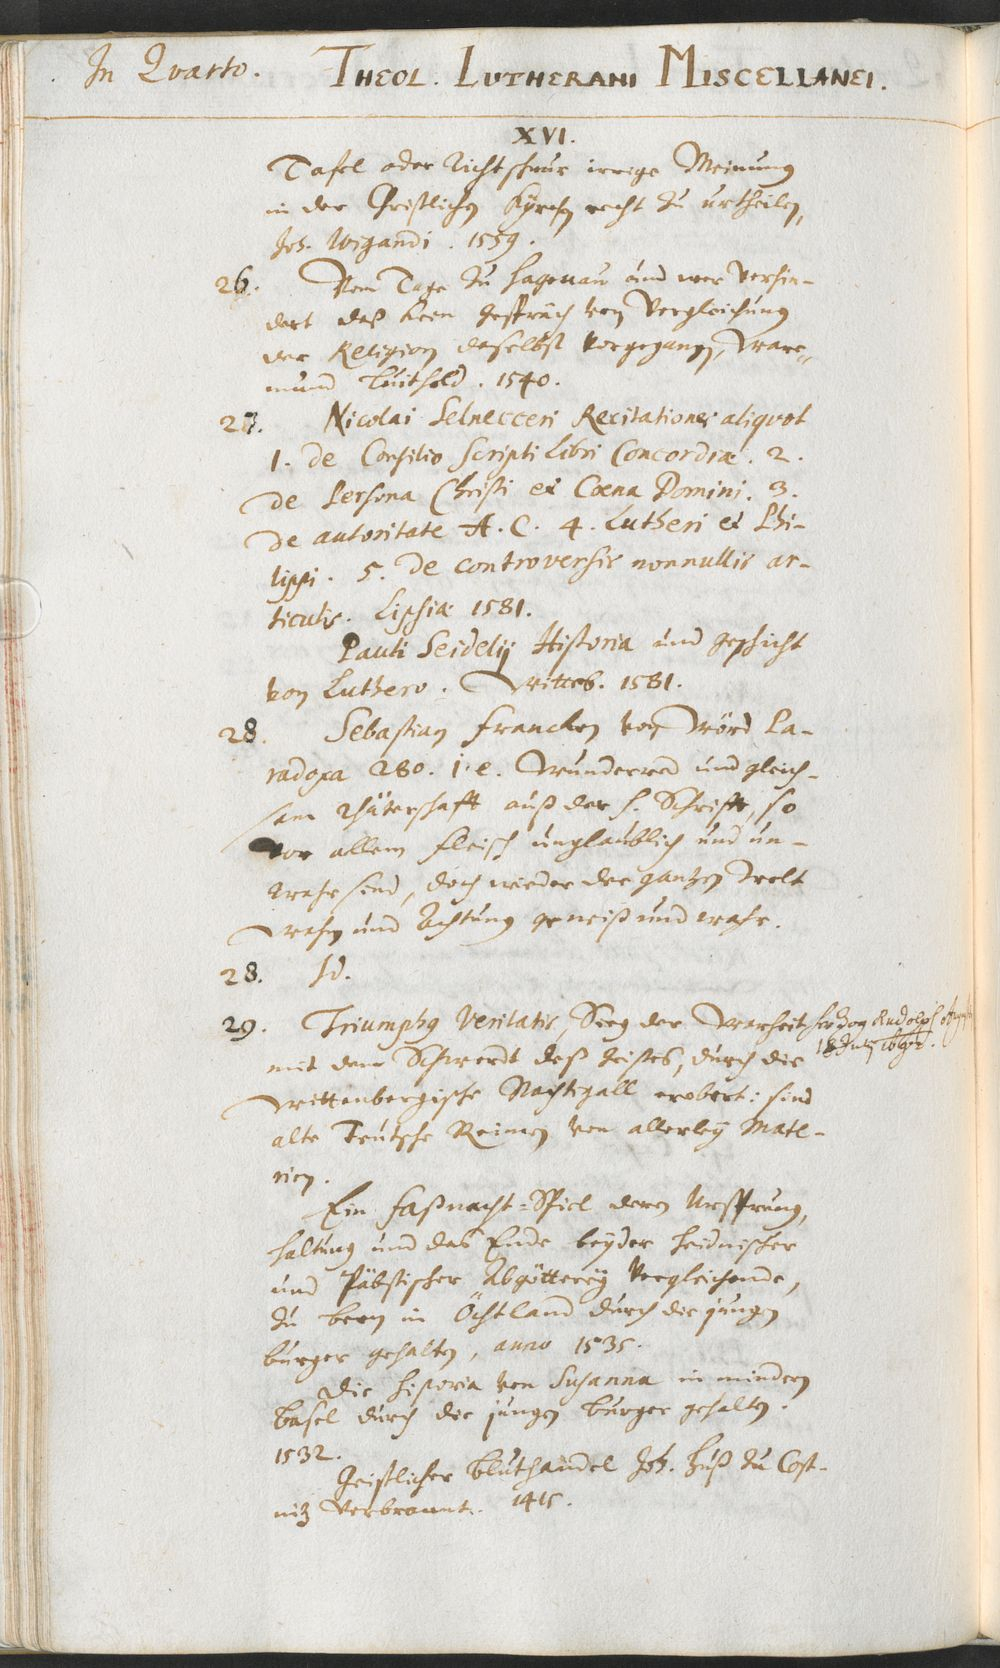 In Qvarto. THEOL. LUTHERANI MISCELLANEI.
XVI.
Tafel oder Richtschnur irrige Meinung
in der Christlichen Kyrchen recht zu urtheilen,
Joh. Wigandi. 1559.
26. Vom Tage zu Hagenau und wer verhin-
dert daß keen Gespräch von Vergleichung
der Religion daselbst vorgegangen, Ware-
mund Luithold. 1540.
27. Nicolai Selnecceri Recitationes aliqvot
1. de Consilio Scripti Libri Concordiæ. 2.
de Persona Christi et Cœna Domini. 3.
de autoritate A. C. 4. Lutheri et Phi-
lippi. 5. de controversis nonnullis ar-
ticulis. Lipsiæ 1581.
Pauli Seidelij Historia und geschicht
von Luthero. Witteb. 1581.
28. Sebastian Francken von Wörd Pa-
radoxa 280. i. e. Wunderred und gleich-
sam Rhäterschafft auß der H. Schrifft, so
vor allem Fleisch unglaublich und un-
wahr sind, doch wieder der gantzen Welt
Wahn und Achtung gewiß und wahr.
28. Id.
29. Triumphg Veritatis, Sieg der Warheit Herzog Rudolph August
mit dem Schwerdt deß Geistes, durch die 18 July
Wittenbergische Nachtigall erobert: sind
alte Teutsche Reimen von allerley Mate-
rien.
Ein Faßnacht-Spiel deren Ursprung,
haltung und das Ende beyder Heidnischer
und Päbstischer Abgötterey Vergleichende,
zu Bern in Öchtland durch die jungen
burger gehalten, anno 1535.
Die Historia von Susanna in mindern
Basel durch die jungen burger gehalten.
1532.
Geistlicher Bluthandel Joh. Huß zu Cost-
nitz Verbrannt. 1415.